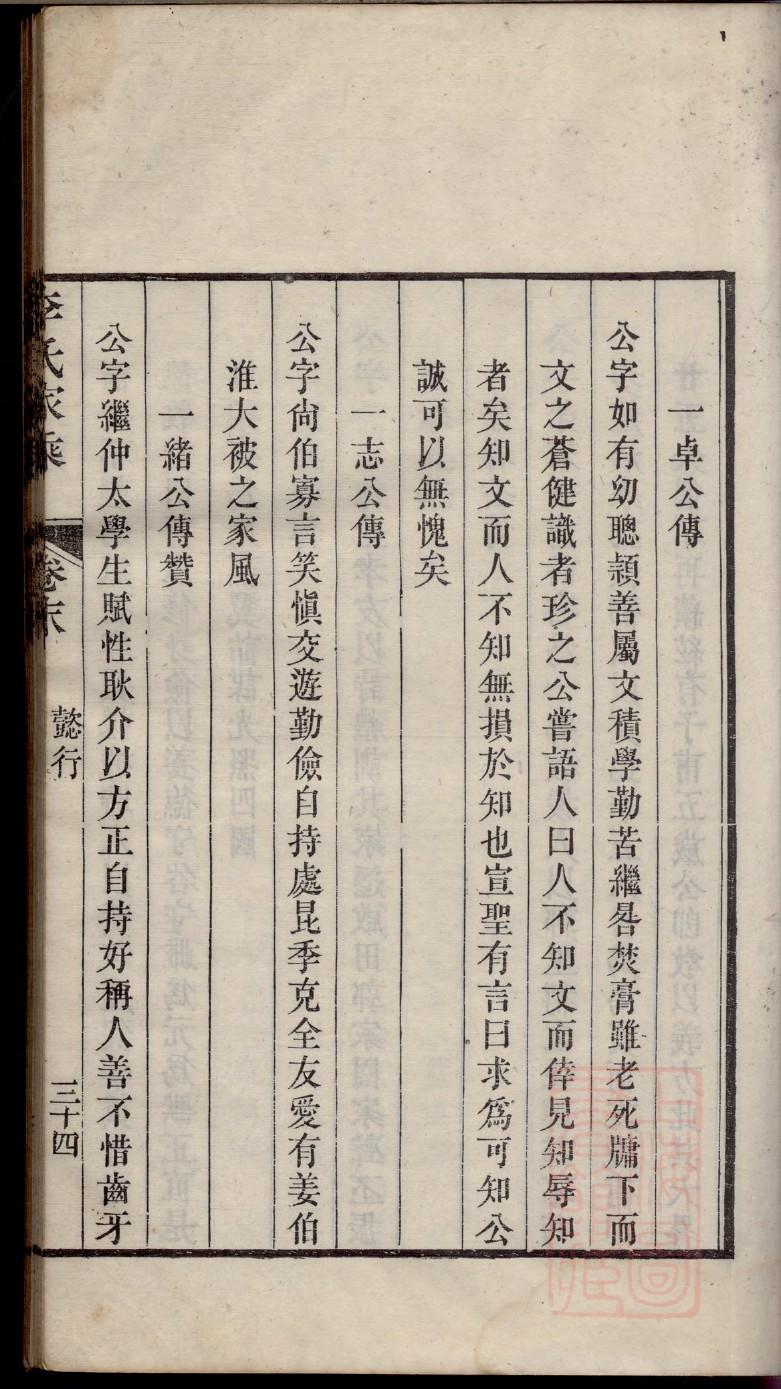 一卓公傳
公字如有幼聰頴善屬文積學勤苦繼晷焚膏雖老死牖下而
文之蒼健識者珍之公嘗語人曰人不知文而倖見知辱知
者矣知文而人不知無損於知也宣聖有言曰求為可知公
誠可以無愧矣
一志公傳
公字尙伯寡言笑愼交遊勤儉自持處昆季克全友愛有姜伯
淮大被之家風
一緒公傳贊
公字繼仲太學生賦性耿介以方正自持好稱人善不惜齒牙
李氏家乘 卷末 懿行 三十四